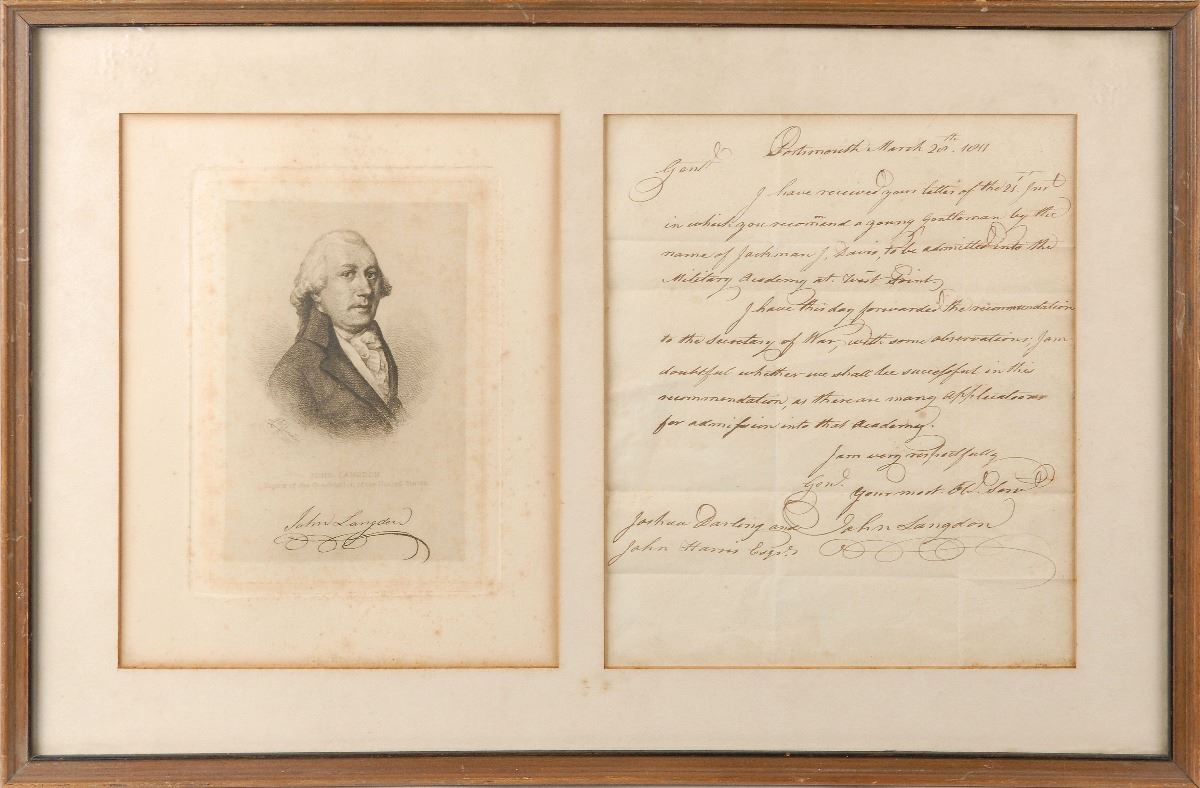 JOHN LANGDON
Signer of the Constitution of the United States
John Langdon
Portsmouth March 28th. 1811
Gentn
I have received your letter of the 21st Inst
in which you recomend a young Gentleman by the
name of Jackman J. Davis, to be admitted into the
Military Academy at West Point.
I have this day forwarded the recommendation
to the Secretary of War, with some observations; I am
doubtful whether we shall be successful in this
recommendation, as there are many applications
for admission into that Academy.
I am very respectfully
Gentn.
your most Ob. Servt
Joshua Darling and
John Langdon
John Harris Esqrs